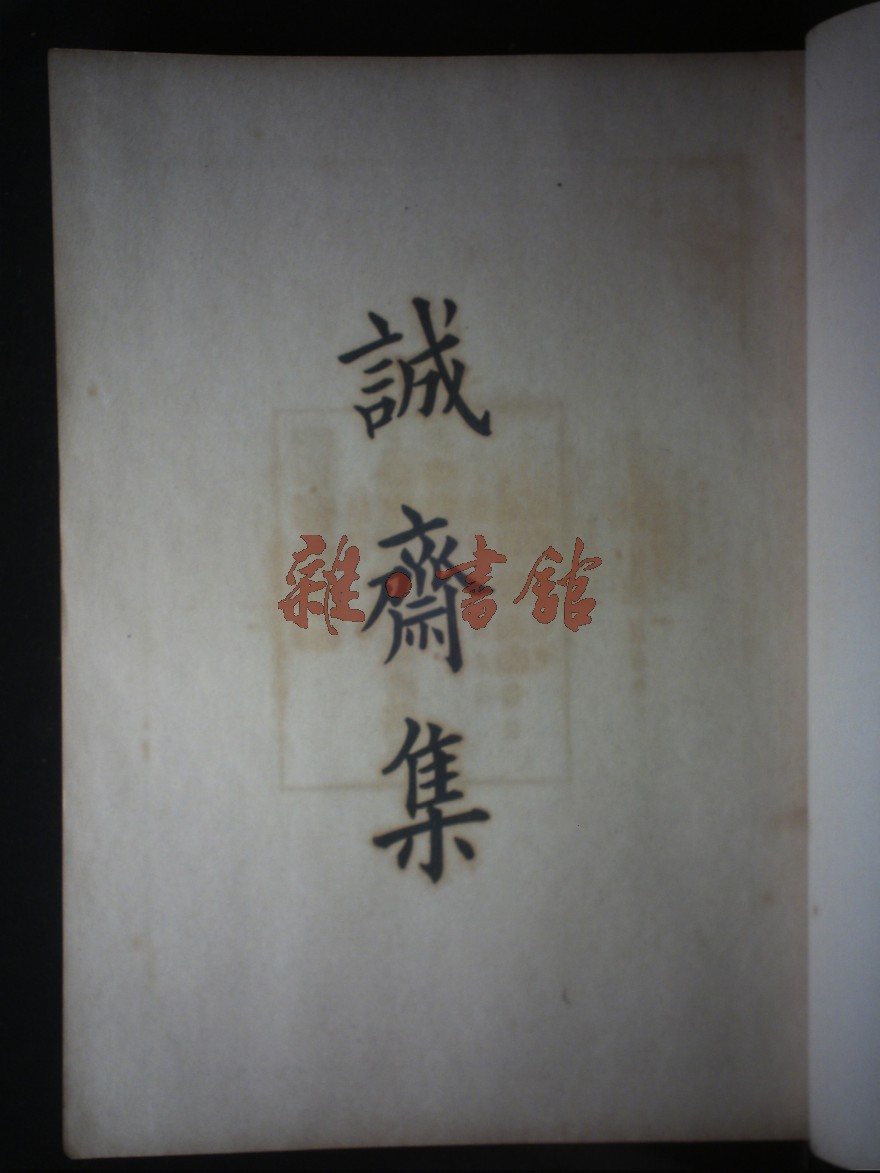 誠齋集
雜·書館